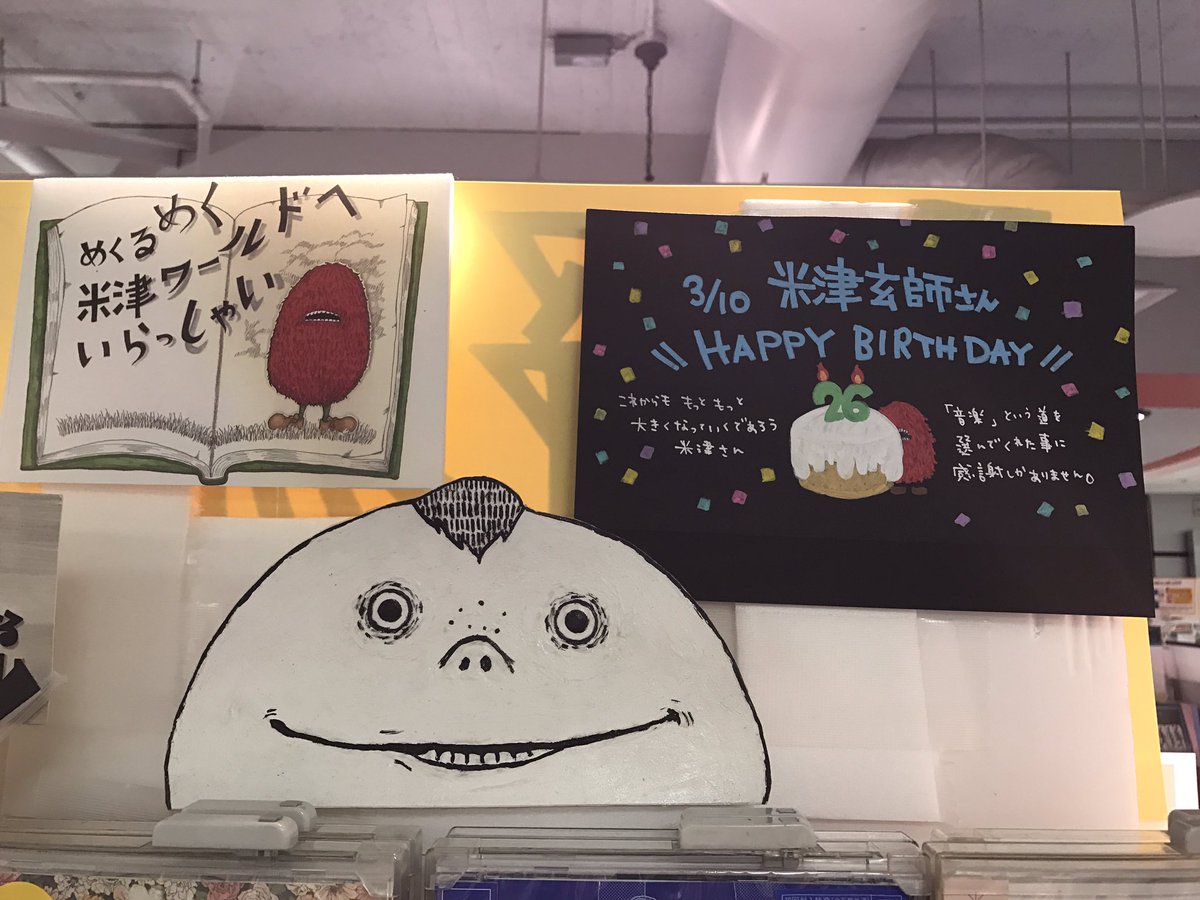 めくるめく
米津ワールドへ
いらっしゃい
3/10 米津玄師さん
\\ HAPPY BIRTHDAY //
26
これからも もっと もっと
大きくなっていくであろう
米津さん
「音楽」という道を
選んでくれた事に
感謝しかありません。